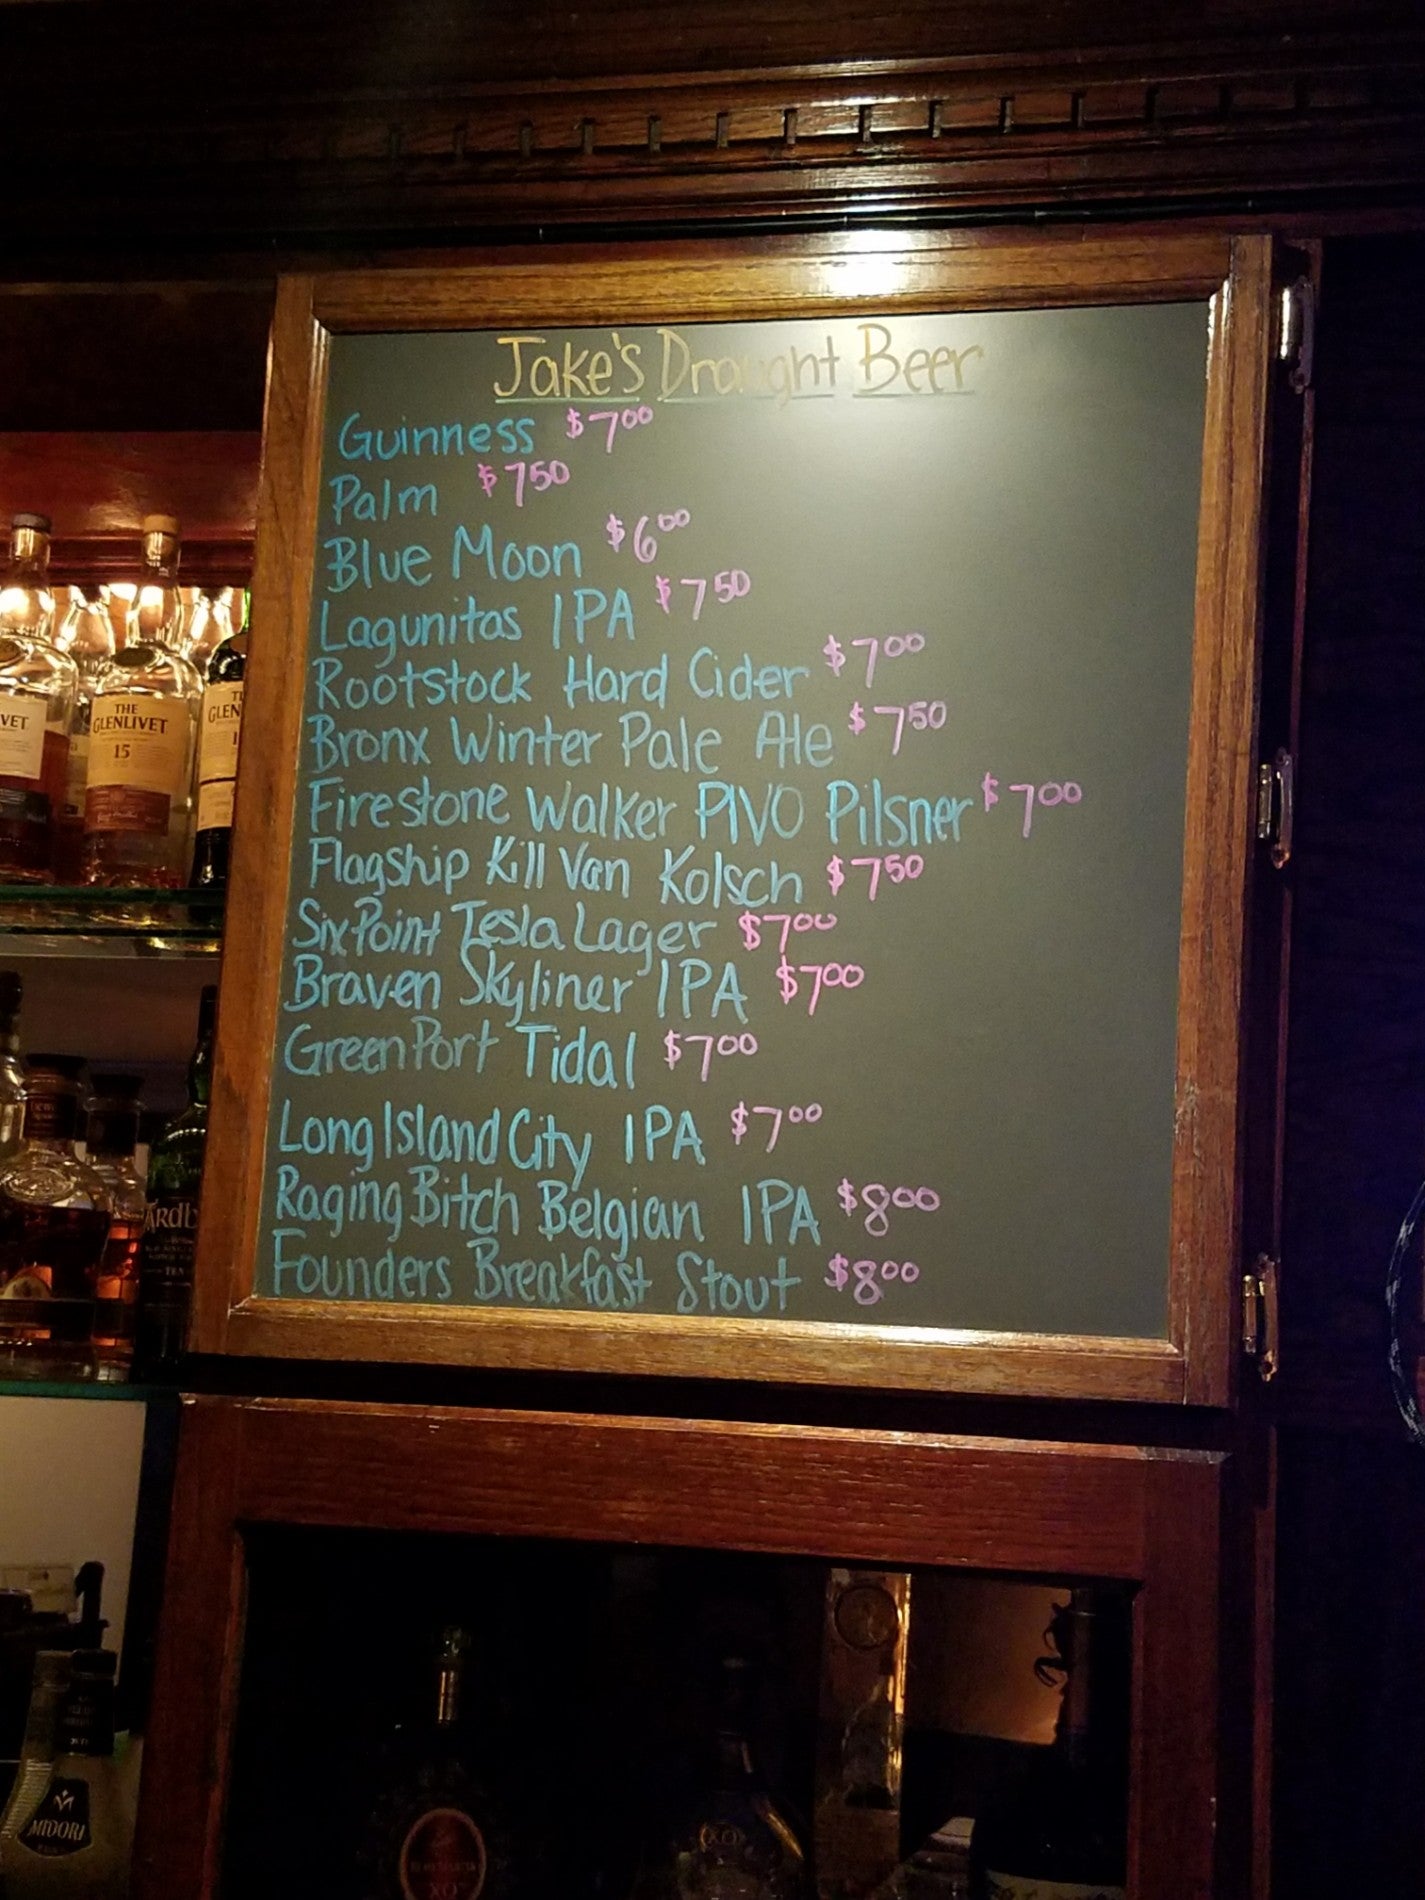 Jake's Draught Beer
Guinness $7.00
Palm $7.50
Blue Moon $6.00
Lagunitas IPA $7.50
Rootstock Hard Cider $7.00
Bronx Winter Pale Ale $7.50
Firestone Walker PIVO Pilsner $7.00
Flagship Kill Van Kolsch $7.50
SixPoint Tesla Lager $7.00
Braven Skyliner IPA $7.00
GreenPort Tidal $7.00
Long Island City IPA $7.00
Raging Bitch Belgian IPA $8.00
Founders Breakfast Stout $8.00
VET
THE
GLENLIVET
15
GLEN
ARDB
TEN
MIDORI
XO
XO